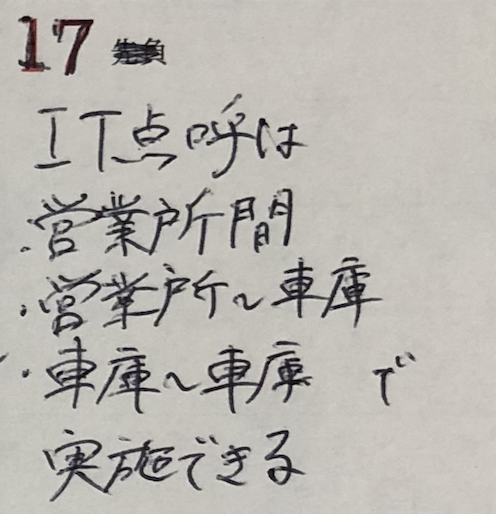 17 先負
IT点呼は
・営業所間
・営業所~車庫
・車庫~車庫 で
実施できる